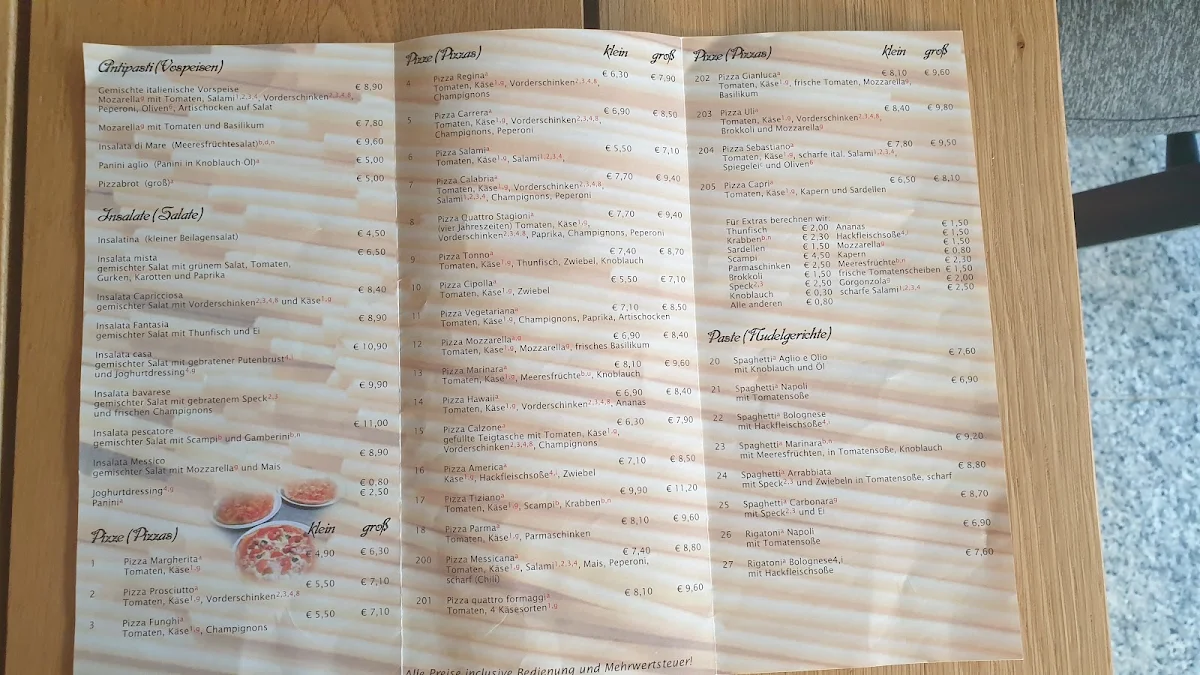 Antipasti (Vospeisen)
Gemischte italienische Vorspeise € 8,90
Mozarellaᵍ mit Tomaten, Salami¹,²,³,⁴, Vorderschinken²,³,⁴,⁸,
Peperoni, Olivenᵍ, Artischocken auf Salat
Mozarellaᵍ mit Tomaten und Basilikum € 7,80
Insalata di Mare (Meeresfrüchtesalat)ᵇ,ᵈ,ⁿ € 9,60
Panini aglio (Panini in Knoblauch-Öl)ᵃ € 5,00
Pizzabrot (groß)ᵃ € 5,00
Insalate (Salate)
Insalatina (kleiner Beilagensalat) € 4,50
Insalata mista € 6,50
gemischter Salat mit grünem Salat, Tomaten,
Gurken, Karotten und Paprika
Insalata Capricciosa € 8,40
gemischter Salat mit Vorderschinken²,³,⁴,⁸ und Käse¹,ᵍ
Insalata Fantasia € 8,90
gemischter Salat mit Thunfisch und Ei
Insalata casa € 10,90
gemischter Salat mit gebratener Putenbrust⁴,ʲ
und Joghurtdressing⁴,ᵍ
Insalata bavarese € 9,90
gemischter Salat mit gebratenem Speck²,³
und frischen Champignons
Insalata pescatore € 11,00
gemischter Salat mit Scampiᵇ und Gamberiniᵇ,ⁿ
Insalata Messico € 8,90
gemischter Salat mit Mozzarellaᵍ und Mais
Joghurtdressing⁴,ᵍ € 0,80
Paniniᵃ € 2,50
Pizze (Pizzas) klein groß
1 Pizza Margheritaᵃ € 4,90 € 6,30
Tomaten, Käse¹,ᵍ
2 Pizza Prosciuttoᵃ € 5,50 € 7,10
Tomaten, Käse¹,ᵍ, Vorderschinken²,³,⁴,⁸
3 Pizza Funghiᵃ € 5,50 € 7,10
Tomaten, Käse¹,ᵍ, Champignons
Pizze (Pizzas) klein groß
4 Pizza Reginaᵃ € 6,30 € 7,90
Tomaten, Käse¹,ᵍ, Vorderschinken²,³,⁴,⁸,
Champignons
5 Pizza Carreraᵃ € 6,90 € 8,50
Tomaten, Käse¹,ᵍ, Vorderschinken²,³,⁴,⁸,
Champignons, Peperoni
6 Pizza Salamiᵃ € 5,50 € 7,10
Tomaten, Käse¹,ᵍ, Salami¹,²,³,⁴,
7 Pizza Calabriaᵃ € 7,70 € 9,40
Tomaten, Käse¹,ᵍ, Vorderschinken²,³,⁴,⁸,
Salami¹,²,³,⁴, Champignons, Peperoni
8 Pizza Quattro Stagioniᵃ € 7,70 € 9,40
(vier Jahreszeiten) Tomaten, Käse¹,ᵍ,
Vorderschinken²,³,⁴,⁸, Paprika, Champignons, Peperoni
9 Pizza Tonnoᵃ € 7,40 € 8,70
Tomaten, Käse¹,ᵍ, Thunfisch, Zwiebel, Knoblauch
10 Pizza Cipollaᵃ € 5,50 € 7,10
Tomaten, Käse¹,ᵍ, Zwiebel
11 Pizza Vegetarianaᵃ € 7,10 € 8,50
Tomaten, Käse¹,ᵍ, Champignons, Paprika, Artischocken
12 Pizza Mozzarellaᵃ,ᵍ € 6,90 € 8,40
Tomaten, Käse¹,ᵍ, Mozzarellaᵍ, frisches Basilikum
13 Pizza Marinaraᵃ € 8,10 € 9,60
Tomaten, Käse¹,ᵍ, Meeresfrüchteᵇ,ⁿ, Knoblauch
14 Pizza Hawaiiᵃ € 6,90 € 8,40
Tomaten, Käse¹,ᵍ, Vorderschinken²,³,⁴,⁸, Ananas
15 Pizza Calzoneᵃ € 6,30 € 7,90
gefüllte Teigtasche mit Tomaten, Käse¹,ᵍ,
Vorderschinken²,³,⁴,⁸, Champignons
16 Pizza Americaᵃ € 7,10 € 8,50
Käse¹,ᵍ, Hackfleischsoße⁴,ⁱ, Zwiebel
17 Pizza Tizianoᵃ € 9,90 € 11,20
Tomaten, Käse¹,ᵍ, Scampiᵇ, Krabbenᵇ,ⁿ
18 Pizza Parmaᵃ € 8,10 € 9,60
Tomaten, Käse¹,ᵍ, Parmaschinken
200 Pizza Messicanaᵃ € 7,40 € 8,80
Tomaten, Käse¹,ᵍ, Salami¹,²,³,⁴, Mais, Peperoni,
scharf (Chili)
201 Pizza quattro formaggiᵃ € 8,10 € 9,60
Tomaten, 4 Käsesorten¹,ᵍ
Alle Preise inclusive Bedienung und Mehrwertsteuer!
Pizze (Pizzas) klein groß
202 Pizza Gianlucaᵃ € 8,10 € 9,60
Tomaten, Käse¹,ᵍ, frische Tomaten, Mozzarellaᵍ,
Basilikum
203 Pizza Uliᵃ € 8,40 € 9,80
Tomaten, Käse¹,ᵍ, Vorderschinken²,³,⁴,⁸,
Brokkoli und Mozzarellaᵍ
204 Pizza Sebastianoᵃ € 7,80 € 9,50
Tomaten, Käse¹,ᵍ, scharfe ital. Salami¹,²,³,⁴,
Spiegeleiᶜ und Oliven⁶
205 Pizza Capriᵃ € 6,50 € 8,10
Tomaten, Käse¹,ᵍ, Kapern und Sardellen
Für Extras berechnen wir:
Thunfisch € 2,00 Ananas € 1,50
Krabbenᵇ,ⁿ € 2,30 Hackfleischsoße⁴,ⁱ € 1,50
Sardellen € 1,50 Mozzarellaᵍ € 1,50
Scampi € 4,50 Kapern € 0,80
Parmaschinken € 2,50 Meeresfrüchteᵇ,ⁿ € 2,30
Brokkoli € 1,50 frische Tomatenscheiben € 1,50
Speck²,³ € 2,50 Gorgonzolaᵍ € 2,00
Knoblauch € 0,30 scharfe Salami¹,²,³,⁴ € 2,50
Alle anderen € 0,80
Paste (Nudelgerichte)
20 Spaghettiᵃ Aglio e Olio € 7,60
mit Knoblauch und Öl
21 Spaghettiᵃ Napoli € 6,90
mit Tomatensoße
22 Spaghettiᵃ Bolognese
mit Hackfleischsoße⁴,ⁱ
23 Spaghettiᵃ Marinaraᵇ,ⁿ € 9,20
mit Meeresfrüchten, in Tomatensoße, Knoblauch
24 Spaghettiᵃ Arrabbiata € 8,80
mit Speck²,³ und Zwiebeln in Tomatensoße, scharf
25 Spaghettiᵃ Carbonaraᵍ € 8,70
mit Speck²,³ und Ei
26 Rigatoniᵃ Napoli € 6,90
mit Tomatensoße
27 Rigatoniᵃ Bolognese4,ⁱ € 7,60
mit Hackfleischsoße